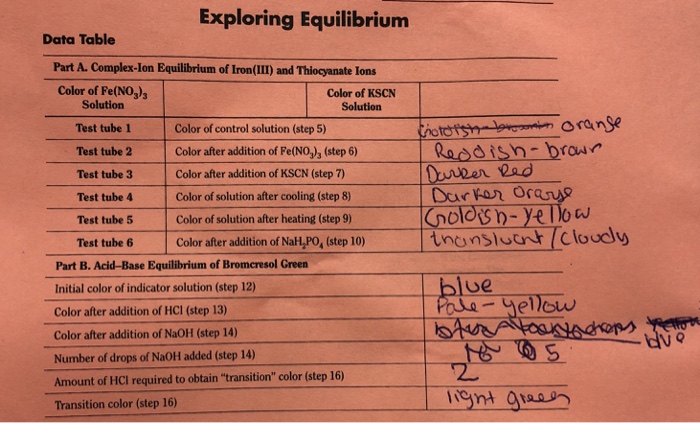 Exploring Equilibrium
Data Table
Part A. Complex-Ion Equilibrium of Iron(III) and Thiocyanate Ions
Color of Fe(NO₃)₃ Solution
Color of KSCN Solution
Test tube 1 Color of control solution (step 5) orange
Test tube 2 Color after addition of Fe(NO₃)₃ (step 6) Reddish-brown
Test tube 3 Color after addition of KSCN (step 7) Darker Red
Test tube 4 Color of solution after cooling (step 8) Darker Orange
Test tube 5 Color of solution after heating (step 9) Goldish-yellow
Test tube 6 Color after addition of NaH₂PO₄ (step 10) thanslucnt / cloudy
Part B. Acid–Base Equilibrium of Bromcresol Green
Initial color of indicator solution (step 12) blue
Color after addition of HCl (step 13) Pale-yellow
Color after addition of NaOH (step 14) blue
Number of drops of NaOH added (step 14) 5
Amount of HCl required to obtain "transition" color (step 16) 2
Transition color (step 16) light green